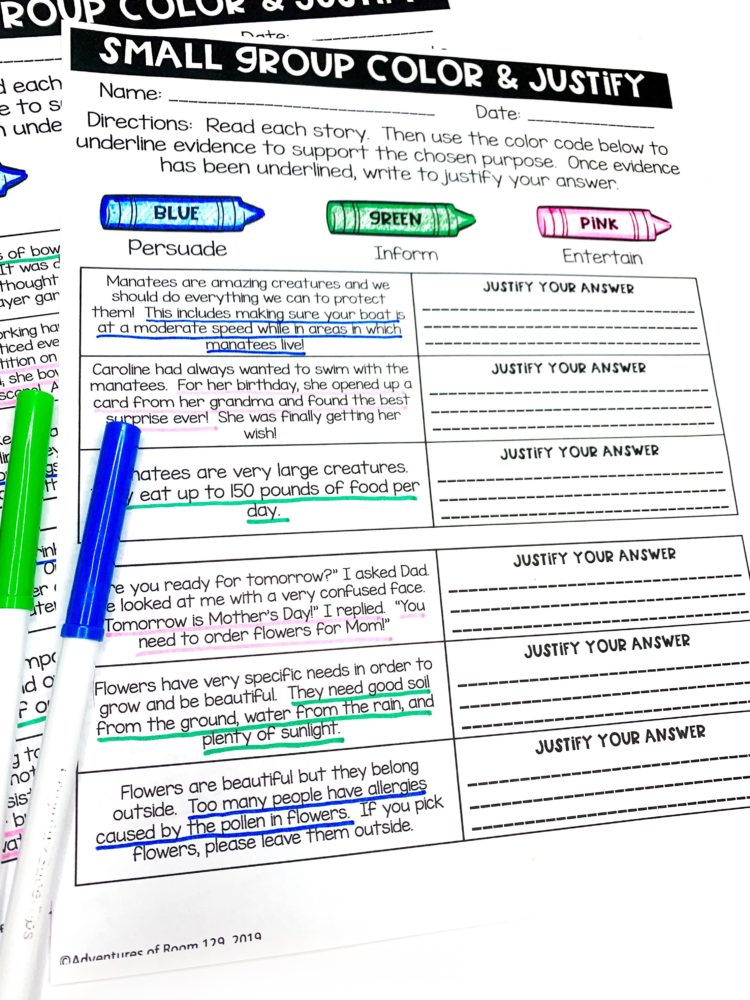 ROUP COLOR & JUSTIFY
Date:
SMALL GROUP COLOR & JUSTIFY
Name:
Date:
Directions: Read each story. Then use the color code below to
underline evidence to support the chosen purpose. Once evidence
has been underlined, write to justify your answer.
BLUE
GREEN
PINK
Persuade
Inform
Entertain
Manatees are amazing creatures and we
should do everything we can to protect
them! This includes making sure your boat is
at a moderate speed while in areas in which
manatees live!
JUSTIFY YOUR ANSWER
Caroline had always wanted to swim with the
manatees. For her birthday, she opened up a
card from her grandma and found the best
surprise ever! She was finally getting her
wish!
JUSTIFY YOUR ANSWER
natees are very large creatures.
eat up to 150 pounds of food per
day.
JUSTIFY YOUR ANSWER
re you ready for tomorrow?" I asked Dad.
e looked at me with a very confused face.
Tomorrow is Mother's Day!" I replied. "You
need to order flowers for Mom!"
JUSTIFY YOUR ANSWER
Flowers have very specific needs in order to
grow and be beautiful. They need good soil
from the ground, water from the rain, and
plenty of sunlight.
JUSTIFY YOUR ANSWER
Flowers are beautiful but they belong
outside. Too many people have allergies
caused by the pollen in flowers. If you pick
flowers, please leave them outside.
JUSTIFY YOUR ANSWER
©Adventures of Room 129, 2019